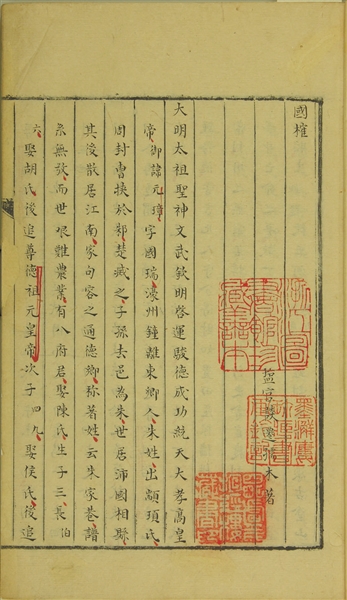 國榷
塩官談遷孺木著
大明太祖聖神文武欽明啓運駿德成功統天大孝高皇
帝御諱元璋字國瑞濠州鍾離東鄉人朱姓出顓頊氏
周封曹挾於邾楚滅之子孫去邑為朱世居沛國相縣
其後散居江南家句容之通德鄉弥著姓云朱家巷譜
系無攷而世艱難農業有八府君娶陳氏生子三長伯
六娶胡氏後追尊德祖元皇帝次子四九娶侯氏後追
浙江圖書館珍藏善本